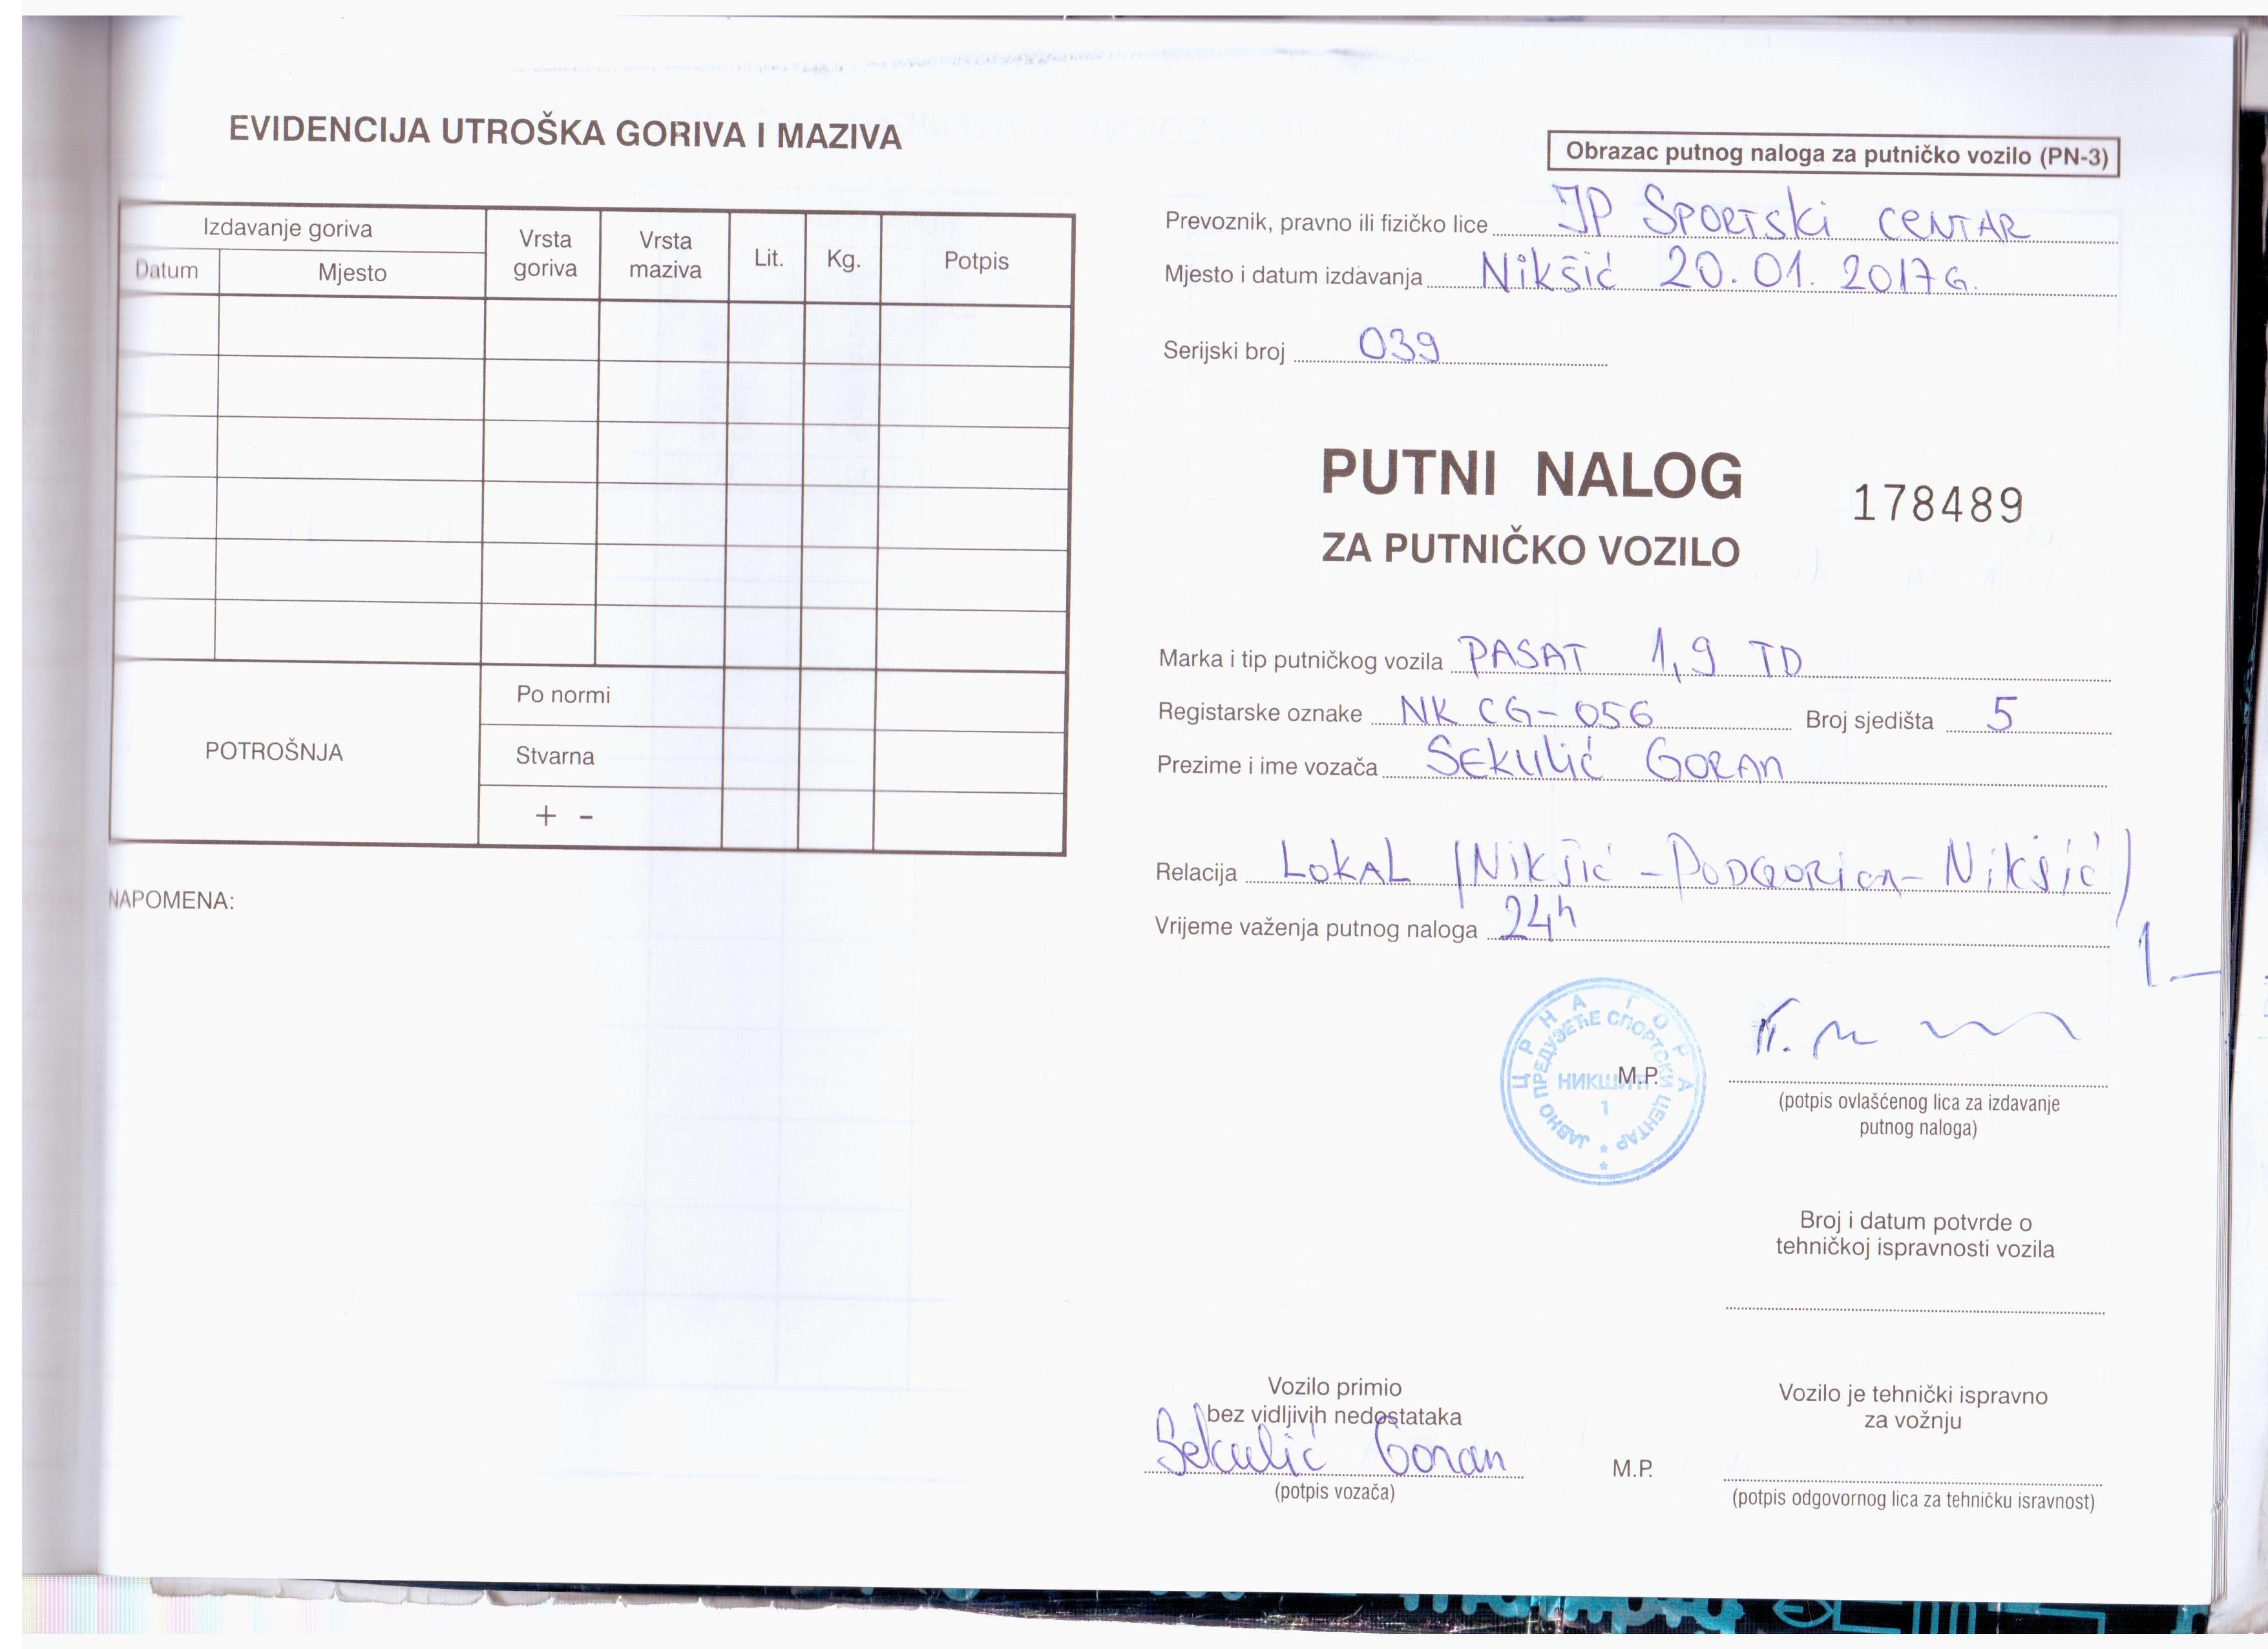 EVIDENCIJA UTROŠKA GORIVA I MAZIVA
Izdavanje goriva
Datum
Mjesto
Vrsta goriva
Vrsta maziva
Lit.
Kg.
Potpis
POTROŠNJA
Po normi
Stvarna
+ -
NAPOMENA:
Obrazac putnog naloga za putničko vozilo (PN-3)
Prevoznik, pravno ili fizičko lice JP SPORTSKI CENTAR
Mjesto i datum izdavanja Nikšić 20.01.2017G.
Serijski broj 039
PUTNI NALOG
178489
ZA PUTNIČKO VOZILO
Marka i tip putničkog vozila PASAT 1,9 TD
Registarske oznake NK CG-056 Broj sjedišta 5
Prezime i ime vozača SEKULIĆ GORAN
Relacija LOKAL (Nikšić - PODGORICA - Nikšić)
Vrijeme važenja putnog naloga 24h
ЦРНА ГОРА
ЈАВНО ПРЕДУЗЕЋЕ СПОРТСКИ ЦЕНТАР
НИКШИЋ
1
M.P.
(potpis ovlašćenog lica za izdavanje
putnog naloga)
Broj i datum potvrde o
tehničkoj ispravnosti vozila
Vozilo primio
bez vidljivih nedostataka
Sekulić Goran
(potpis vozača)
M.P.
Vozilo je tehnički ispravno
za vožnju
(potpis odgovornog lica za tehničku isravnost)